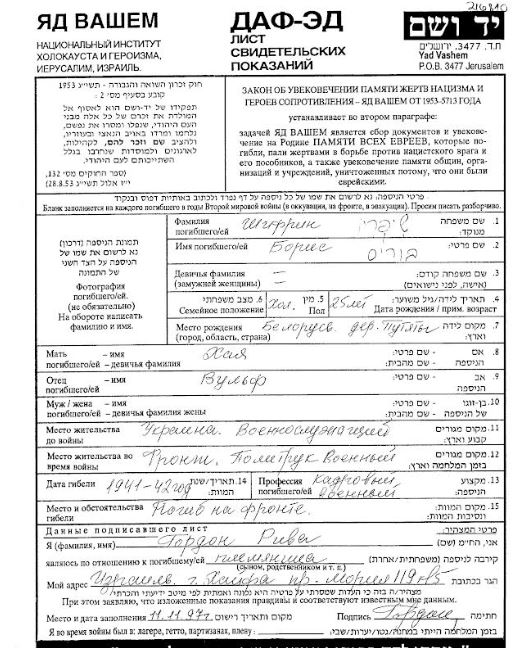 216810
ЯД ВАШЕМ
НАЦИОНАЛЬНЫЙ ИНСТИТУТ
ХОЛОКОСТА И ГЕРОИЗМА,
ИЕРУСАЛИМ, ИЗРАИЛЬ.
ДАФ-ЭД
ЛИСТ
СВИДЕТЕЛЬСКИХ
ПОКАЗАНИЙ
יד ושם
ת.ד. 3477, ירושלים
Yad Vashem
P.O.B. 3477 Jerusalem
חוק זכרון השואה והגבורה - תשי"ג 1953
קובע בסעיף מס' 2 :
תפקידו של יד-ושם הוא לאסוף אל
המולדת את זכרם של כל אלה מבני
העם היהודי, שנפלו ומסרו את נפשם,
נלחמו ומרדו באויב הנאצי ובעוזריו,
ולהציב שם וזכר להם, לקהילות,
לארגונים ולמוסדות שנחרבו בגלל
השתייכותם לעם היהודי.
(ספר החוקים מס' 132,
י"ז אלול תשי"ג 28.8.53)
ЗАКОН ОБ УВЕКОВЕЧЕНИИ ПАМЯТИ ЖЕРТВ НАЦИЗМА И
ГЕРОЕВ СОПРОТИВЛЕНИЯ – ЯД ВАШЕМ ОТ 1953-5713 ГОДА
устанавливает во втором параграфе:
задачей ЯД ВАШЕМ является сбор документов и увекове-
чение на Родине ПАМЯТИ ВСЕХ ЕВРЕЕВ, которые по-
гибли, пали жертвами в борьбе против нацистского врага и
его пособников, а также увековечение памяти общин, орга-
низаций и учреждений, уничтоженных потому, что они были
еврейскими.
פרטי הניספה. נא לרשום את שמו של כל ניספה על דף נפרד ולכתוב באותיות דפוס ובנקוד
Бланк заполняется на каждого погибшего в годы Второй мировой войны (в оккупации, на фронте, в эвакуации). Просим писать разборчиво.
תמונת הניספה (דרכון)
נא לרשום את שמו של
הניספה על הצד השני
של התמונה
Фотография
погибшего/ей.
(не обязательно)
На обороте написать
фамилию и имя.
Фамилия погибшего/ей Шифрин שיפרין 1. שם משפחה
Имя погибшего/ей Борис בוריס 2. שם פרטי:
Девичья фамилия (замужней женщины) – 3. שם משפחה קודם: (אישה, לפני נישואים)
6. מצב משפחתי Семейное положение Хол. 5. מין Пол 25 лет 4. תאריך לידה/גיל משוער: Дата рождения / прим. возраст
Место рождения (город, область, страна) Белорусс. дер. 7. מקום לידה וארץ:
Мать – имя погибшего/ей – девичья фамилия Хая 8. אם - שם פרטי: הניספה - שם מהבית:
Отец – имя погибшего/ей Вульф 9. אב - שם פרטי: הניספה
Муж / жена – имя погибшего/ей – девичья фамилия жены 10. בן-זוגו - שם פרטי: של הניספה - שם מהבית:
Место жительства до войны Украина. Военнослужащий 11. מקום מגורים קבוע וארץ:
Место жительства во время войны Фронт. Политрук Военный 12. מקום מגורים בזמן המלחמה וארץ:
Дата гибели 1941-42 год 14. תאריך/שנת המוות: Профессия погибшего/ей Кадровый военный 13. מקצוע הניספה:
Место и обстоятельства гибели Погиб на фронте. 15. מקום המוות: ונסיבות המוות:
Данные подписавшего лист פרטי המצהיר.
Я (фамилия, имя) Гордон Рива אני, החי"מ (שם)
являюсь по отношению к погибшему/ей племянница קירבה לניספה (משפחתית/אחרת)
(сыном, родственником и т. п.)
Мой адрес Израиль г. Хайфа пр. Мория 119 הגר בכתובת
מצהיר/ה בזה כי העדות שמסרתי על פרטיה היא נכונה ואמתית לפי מיטב ידיעתי והכרתי:
При этом заявляю, что изложенные показания правдивы и соответствуют известным мне данным.
Место и дата заполнения 11.11.97г. מקום ותאריך רישום Подпись Гордон חתימה
Я во время войны был в: лагере, гетто, партизанах, плену: בזמן המלחמה הייתי במחנה/גטו/יערות/שבי: